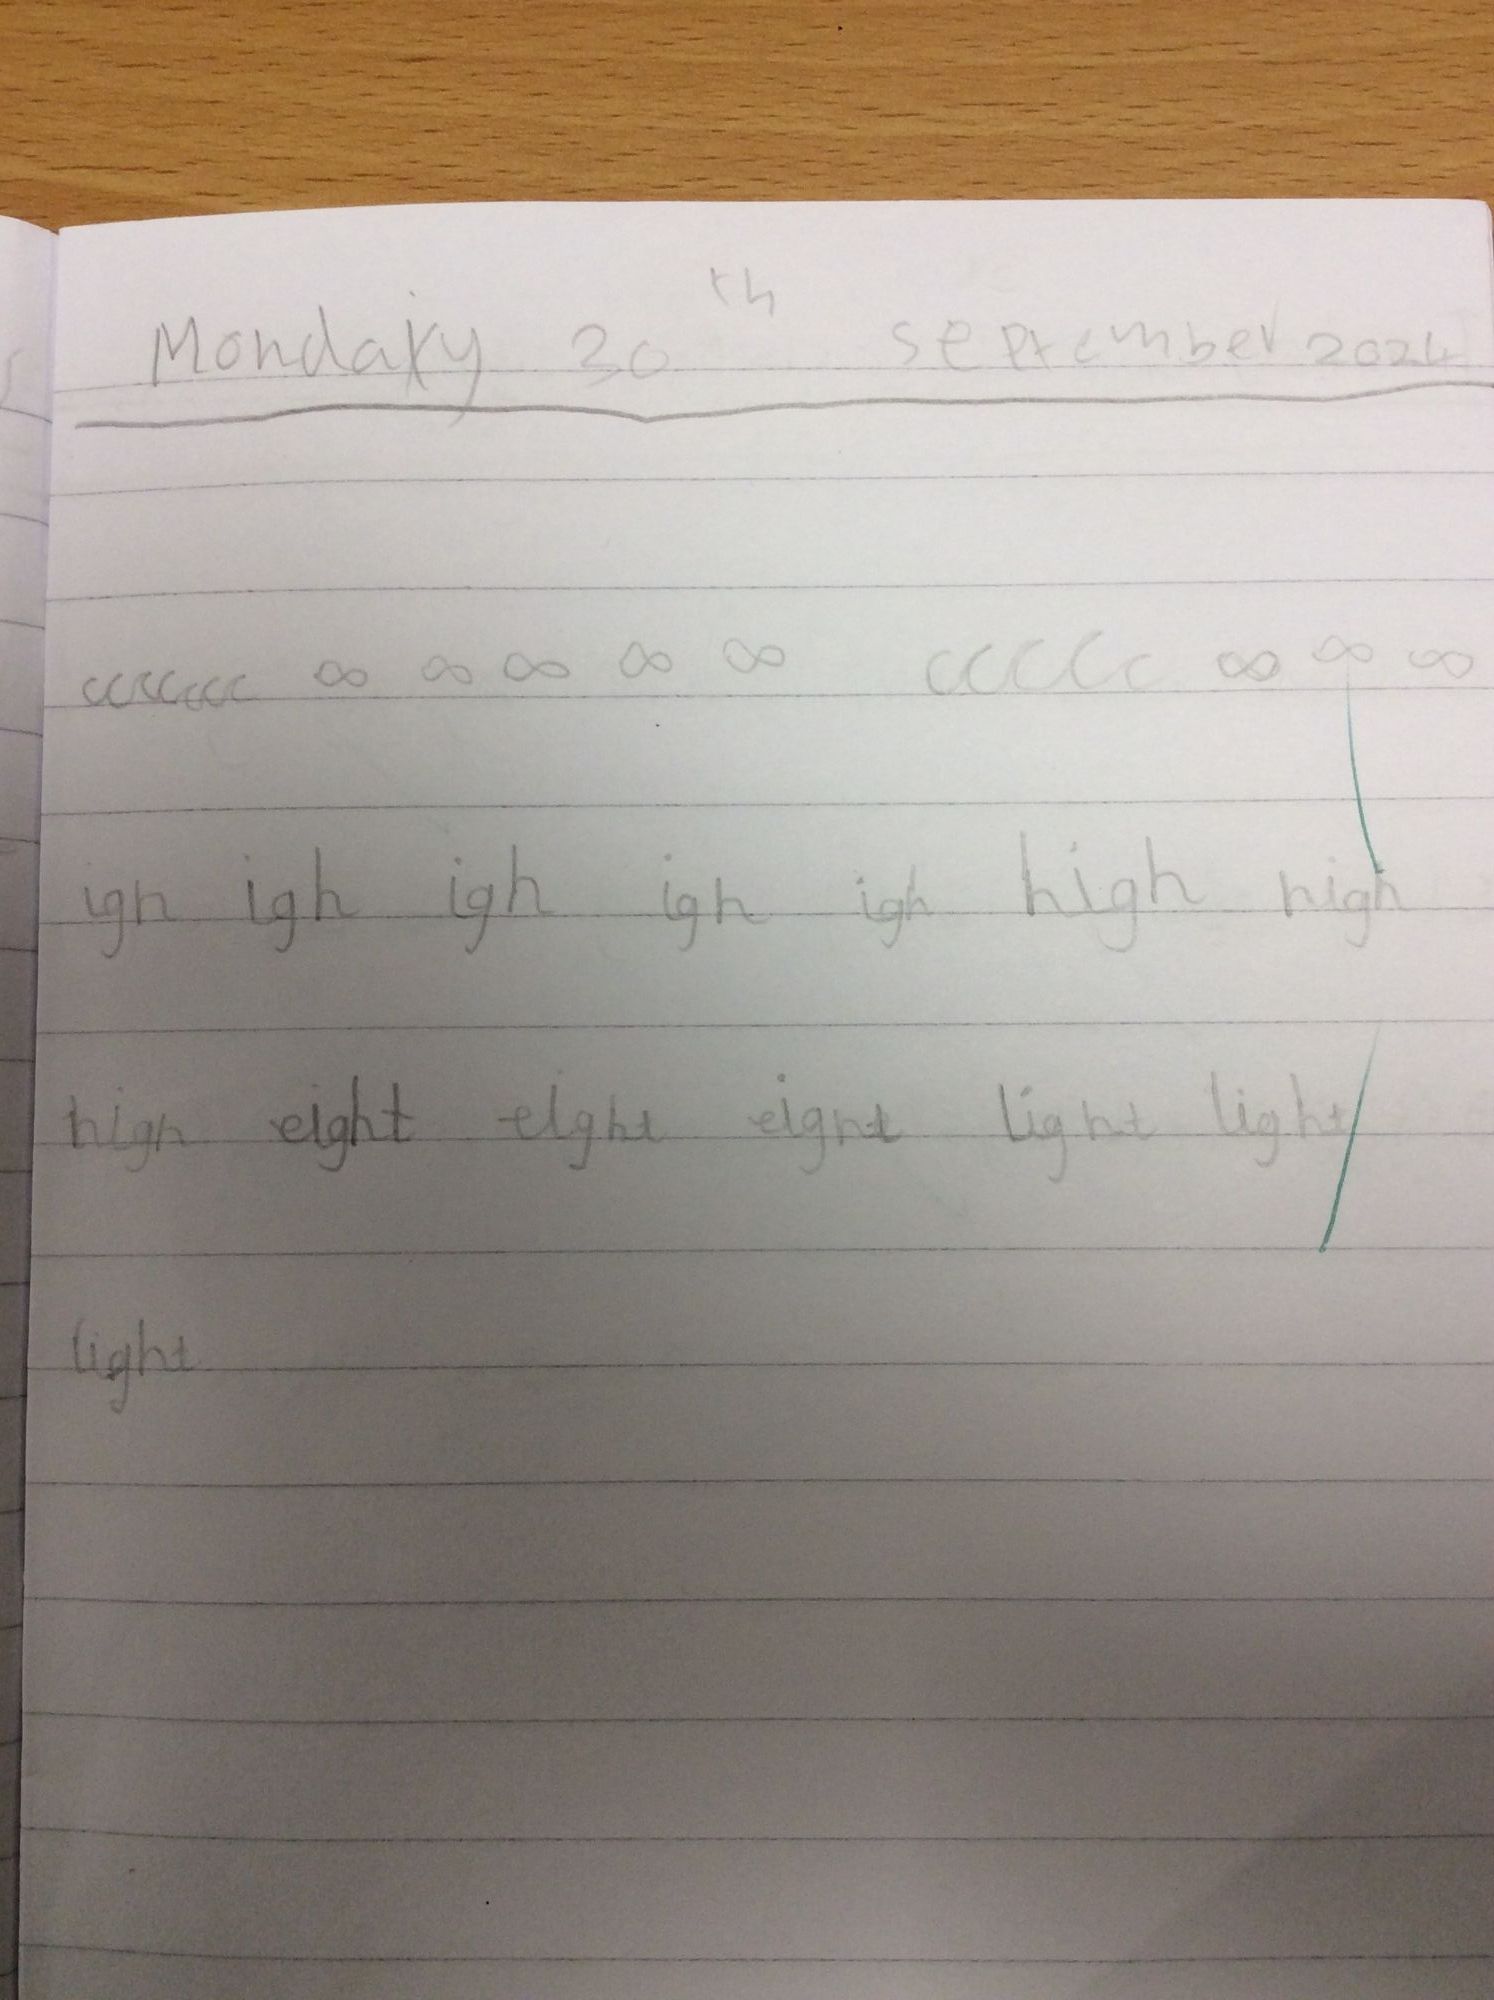 Monday 30th September 2024
ccccccc ∞ ∞ ∞ ∞ ∞ ccccc ∞ ∞ ∞
igh igh igh igh igh high high
high eight eight eight light light
light